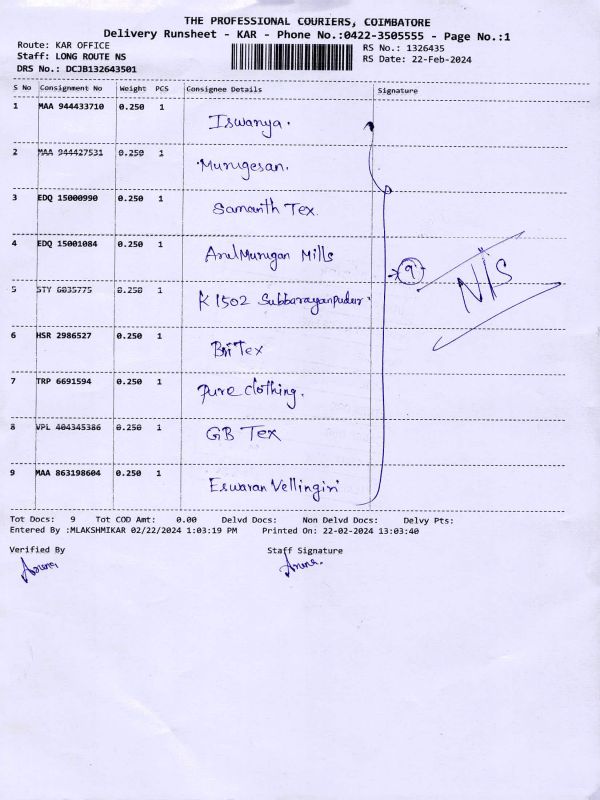 THE PROFESSIONAL COURIERS, COIMBATORE
Delivery Runsheet - KAR - Phone No.:0422-3505555 - Page No.:1
Route: KAR OFFICE
RS No.: 1326435
Staff: LONG ROUTE NS
RS Date: 22-Feb-2024
DRS No.: DCJB132643501
S No Consignment No Weight PCS Consignee Details Signature
1 MAA 944433710 0.250 1 Iswarya.
2 MAA 944427531 0.250 1 Murugesan.
3 EDQ 15000990 0.250 1 Samanth Tex.
4 EDQ 15001084 0.250 1 ArulMurugan Mills
9
NiS
5 STY 6035775 0.250 1 K 1502 Subbarayanpudur.
6 HSR 2986527 0.250 1 Bri Tex
7 TRP 6691594 0.250 1 Pure clothing.
8 VPL 404345386 0.250 1 GB Tex
9 MAA 863198604 0.250 1 Eswaran Vellingiri
Tot Docs: 9 Tot COD Amt: 0.00 Delvd Docs: Non Delvd Docs: Delvy Pts:
Entered By :MLAKSHMIKAR 02/22/2024 1:03:19 PM Printed On: 22-02-2024 13:03:40
Verified By Staff Signature